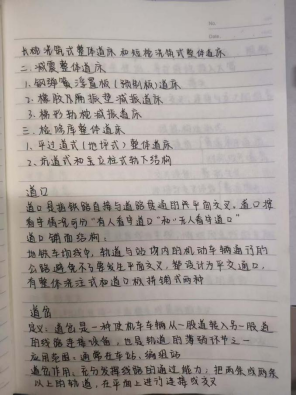 长枕埋入式整体道床和短枕埋入式整体道床
二.减震整体道床
1.钢弹簧浮置板(预制板)道床
2.橡胶隔振垫减振道床
3.梯形轨枕减振道床
三.检修库整体道床
1.平过道式(地坪式)整体道床
2.坑道式和立柱式轨下结构
道口
道口是指铁路直接与道路贯通的平面交叉。道口按
看守情况可分"有人看守道口"和"无人看守道口"
道口铺面结构:
地铁车场线中,轨道与站场内的机动车辆通行的
公路避免不了要发生平面交叉,都设计为平交道口,
有整体浇注式和道口板拼铺式两种
道岔
定义:道岔是一种使机车车辆从一股道转入另一股道
的线路连接设备,也是轨道的薄弱环节之一
应用范围:通常在车站、编组站
道岔作用:充分发挥线路的通过能力;把两条或两条
以上的轨道,在平面上进行连接或交叉